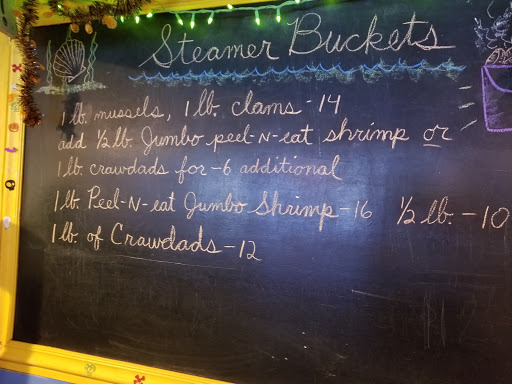 Steamer Buckets
1 lb. mussels, 1 lb. clams - 14
add ½ lb. Jumbo peel-N-eat shrimp or
1 lb. crawdads for - 6 additional
1 lb. Peel-N-eat Jumbo Shrimp - 16   ½ lb. - 10
1 lb. of Crawdads - 12